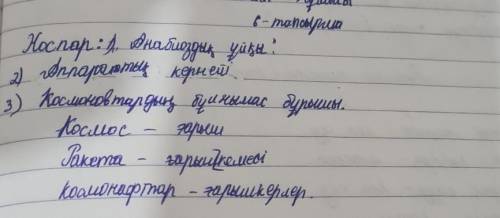 6-тапсырма
Жоспар: 1. Анабиоздық ұйқы:
2) Аппараттың кернеті
3) Космоновтардың бұлжымас бұрышы.
Космос – ғарыш
Ракета – ғарыш кемесі
космонафттар – ғарышкерлер.